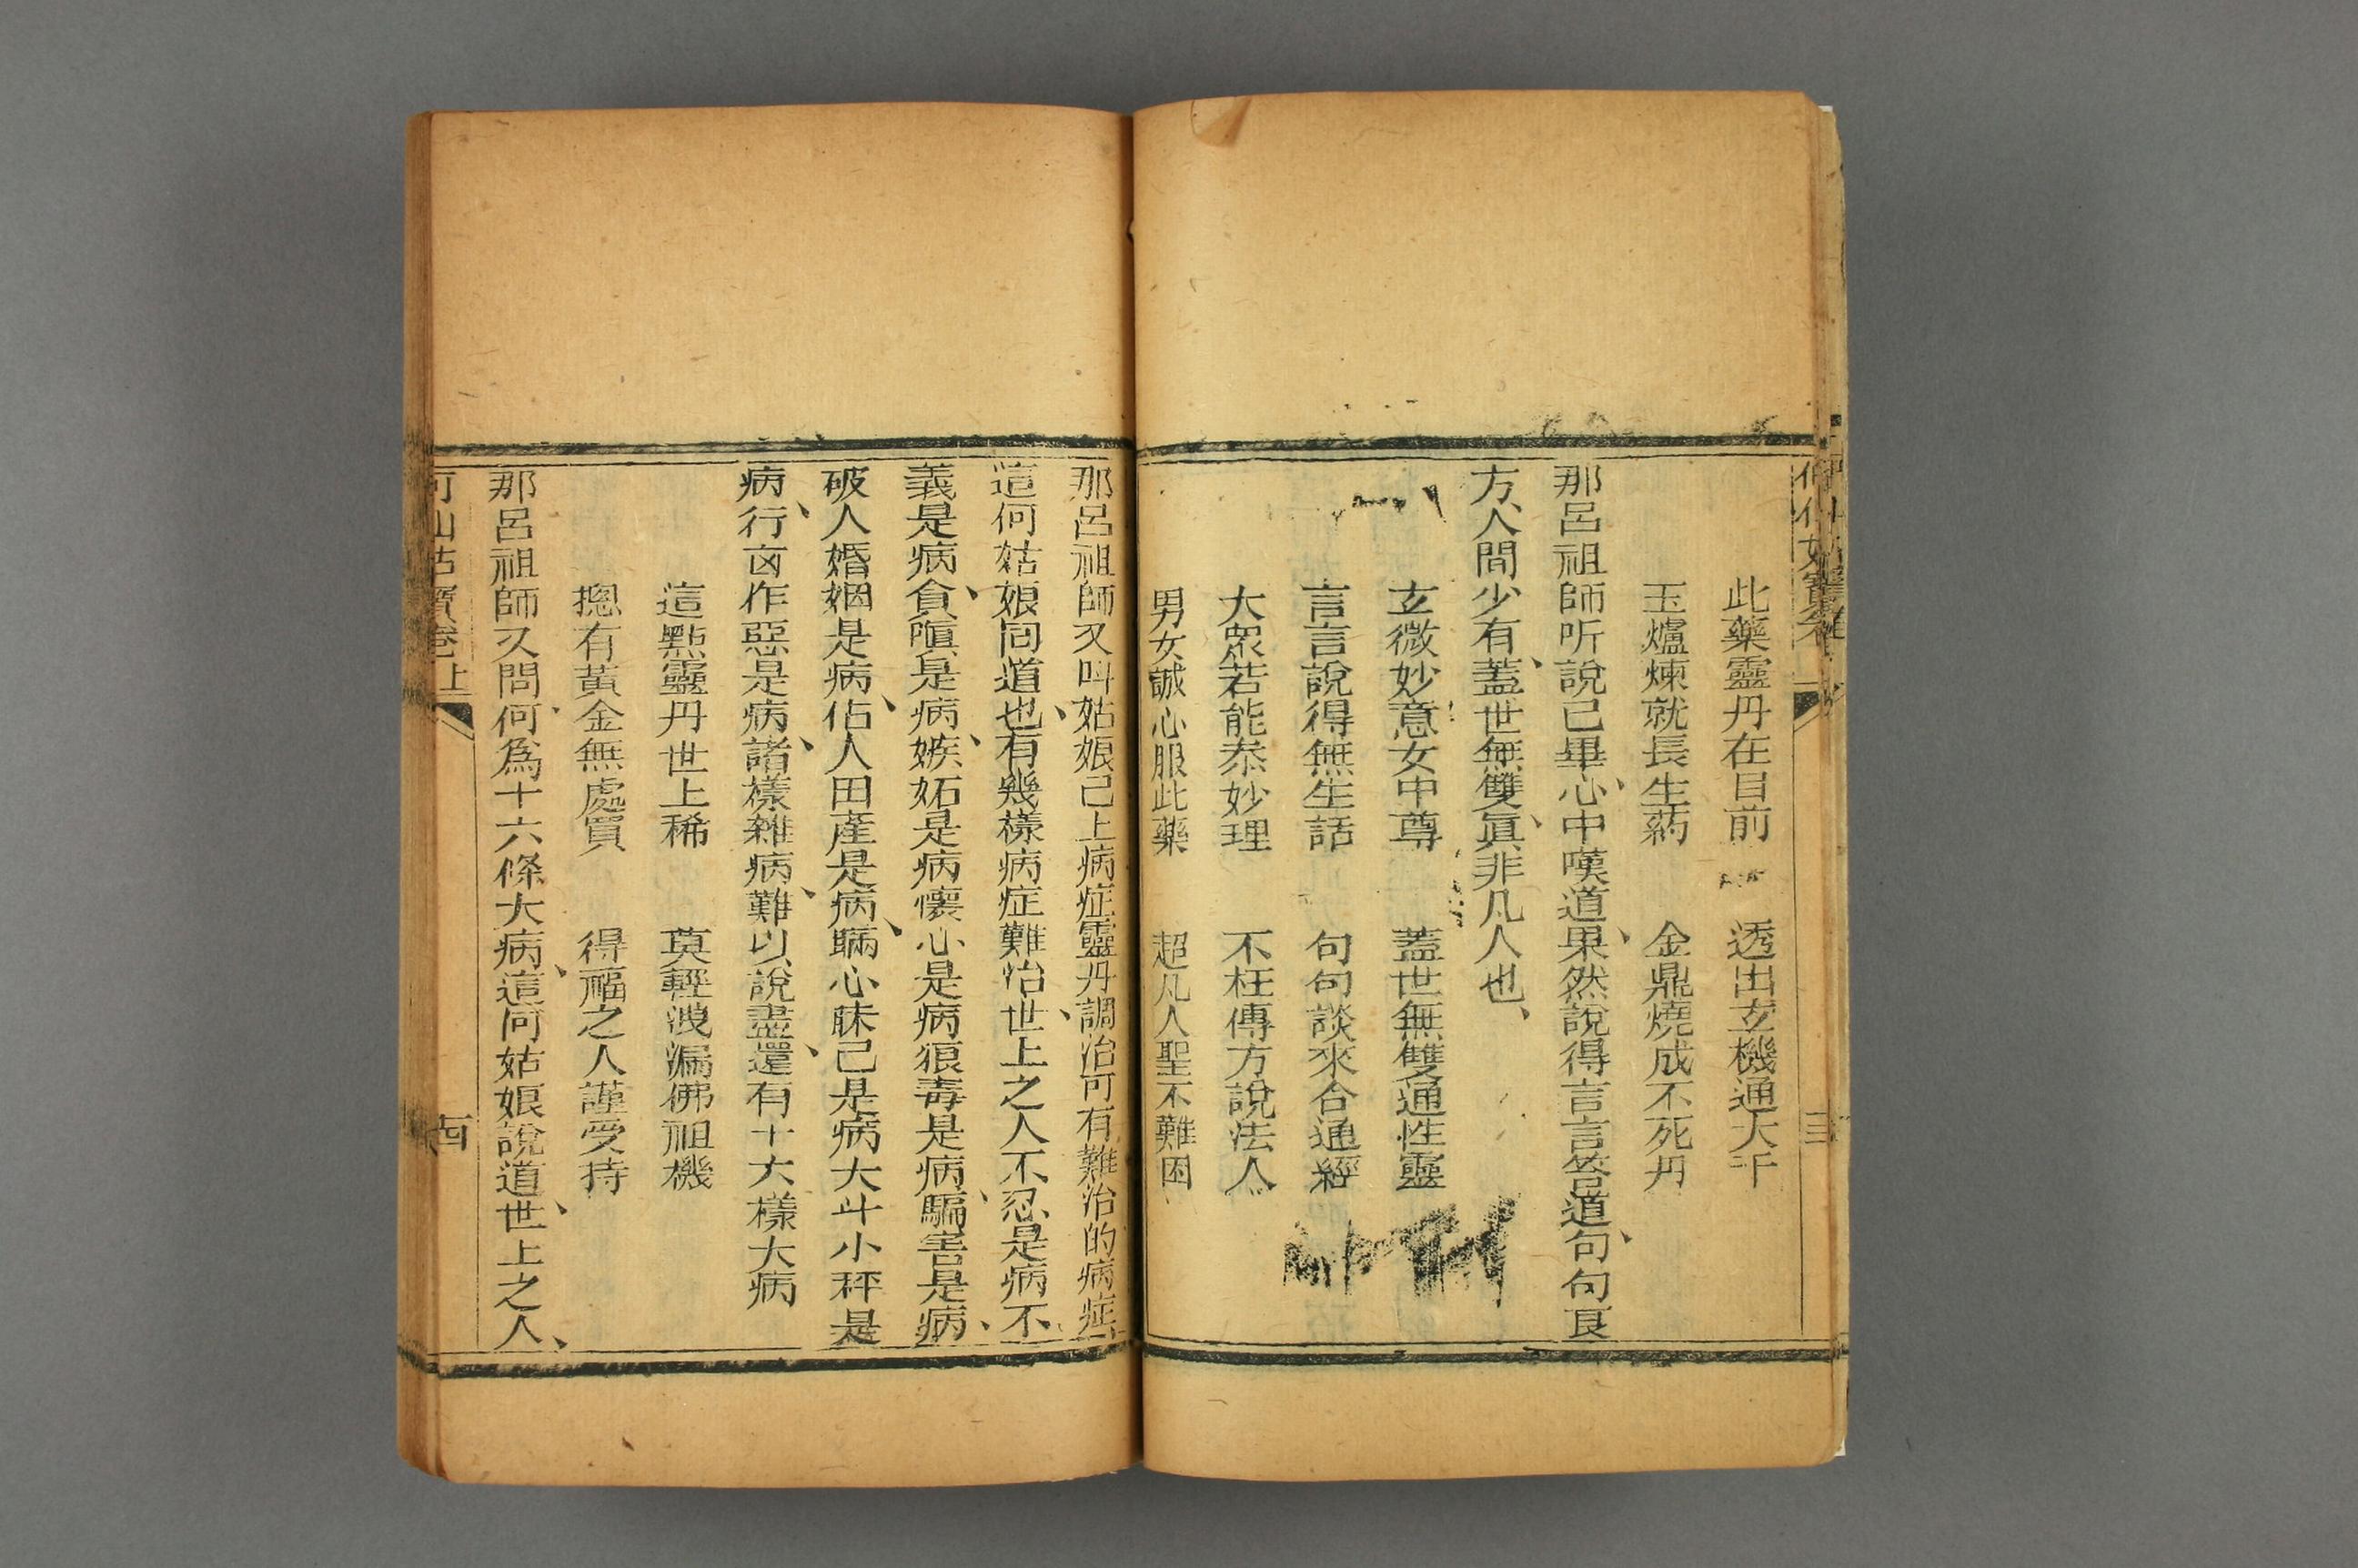 此藥靈丹在目前　透出玄機通大千
玉爐煉就長生葯　金鼎燒成不死丹
那呂祖師听說已畢、心中嘆道、果然說得言言答道、句句良
方、人間少有、蓋世無雙、眞非凡人也、
玄微妙意女中尊　蓋世無雙通性靈
言言說得無生話　句句談來合通經
大眾若能叅妙理　不枉傳方說法人
男女誠心服此藥　超凡人聖不難因
那呂祖師又叫姑娘己上病症靈丹調治可有難治的病症
這何姑娘囘道也、有幾樣病症難怡、世上之人不忍是病不
義是病、貪嗔是病、嫉妬是病懷心是病狠毒是病、騙害是病、
破人婚姻是病、佔人田產是病、瞞心昧己是病大斗小秤是
病、行㐫作惡是病、諸樣雜病、難以說盡、還有十六樣大病
這點靈丹世上稀　莫輕洩漏佛祖機
摠有黃金無處買　得福之人謹受持
那呂祖師又問、何爲十六條大病、這何姑娘說道、世上之人、
何仙姑寶卷上　十四